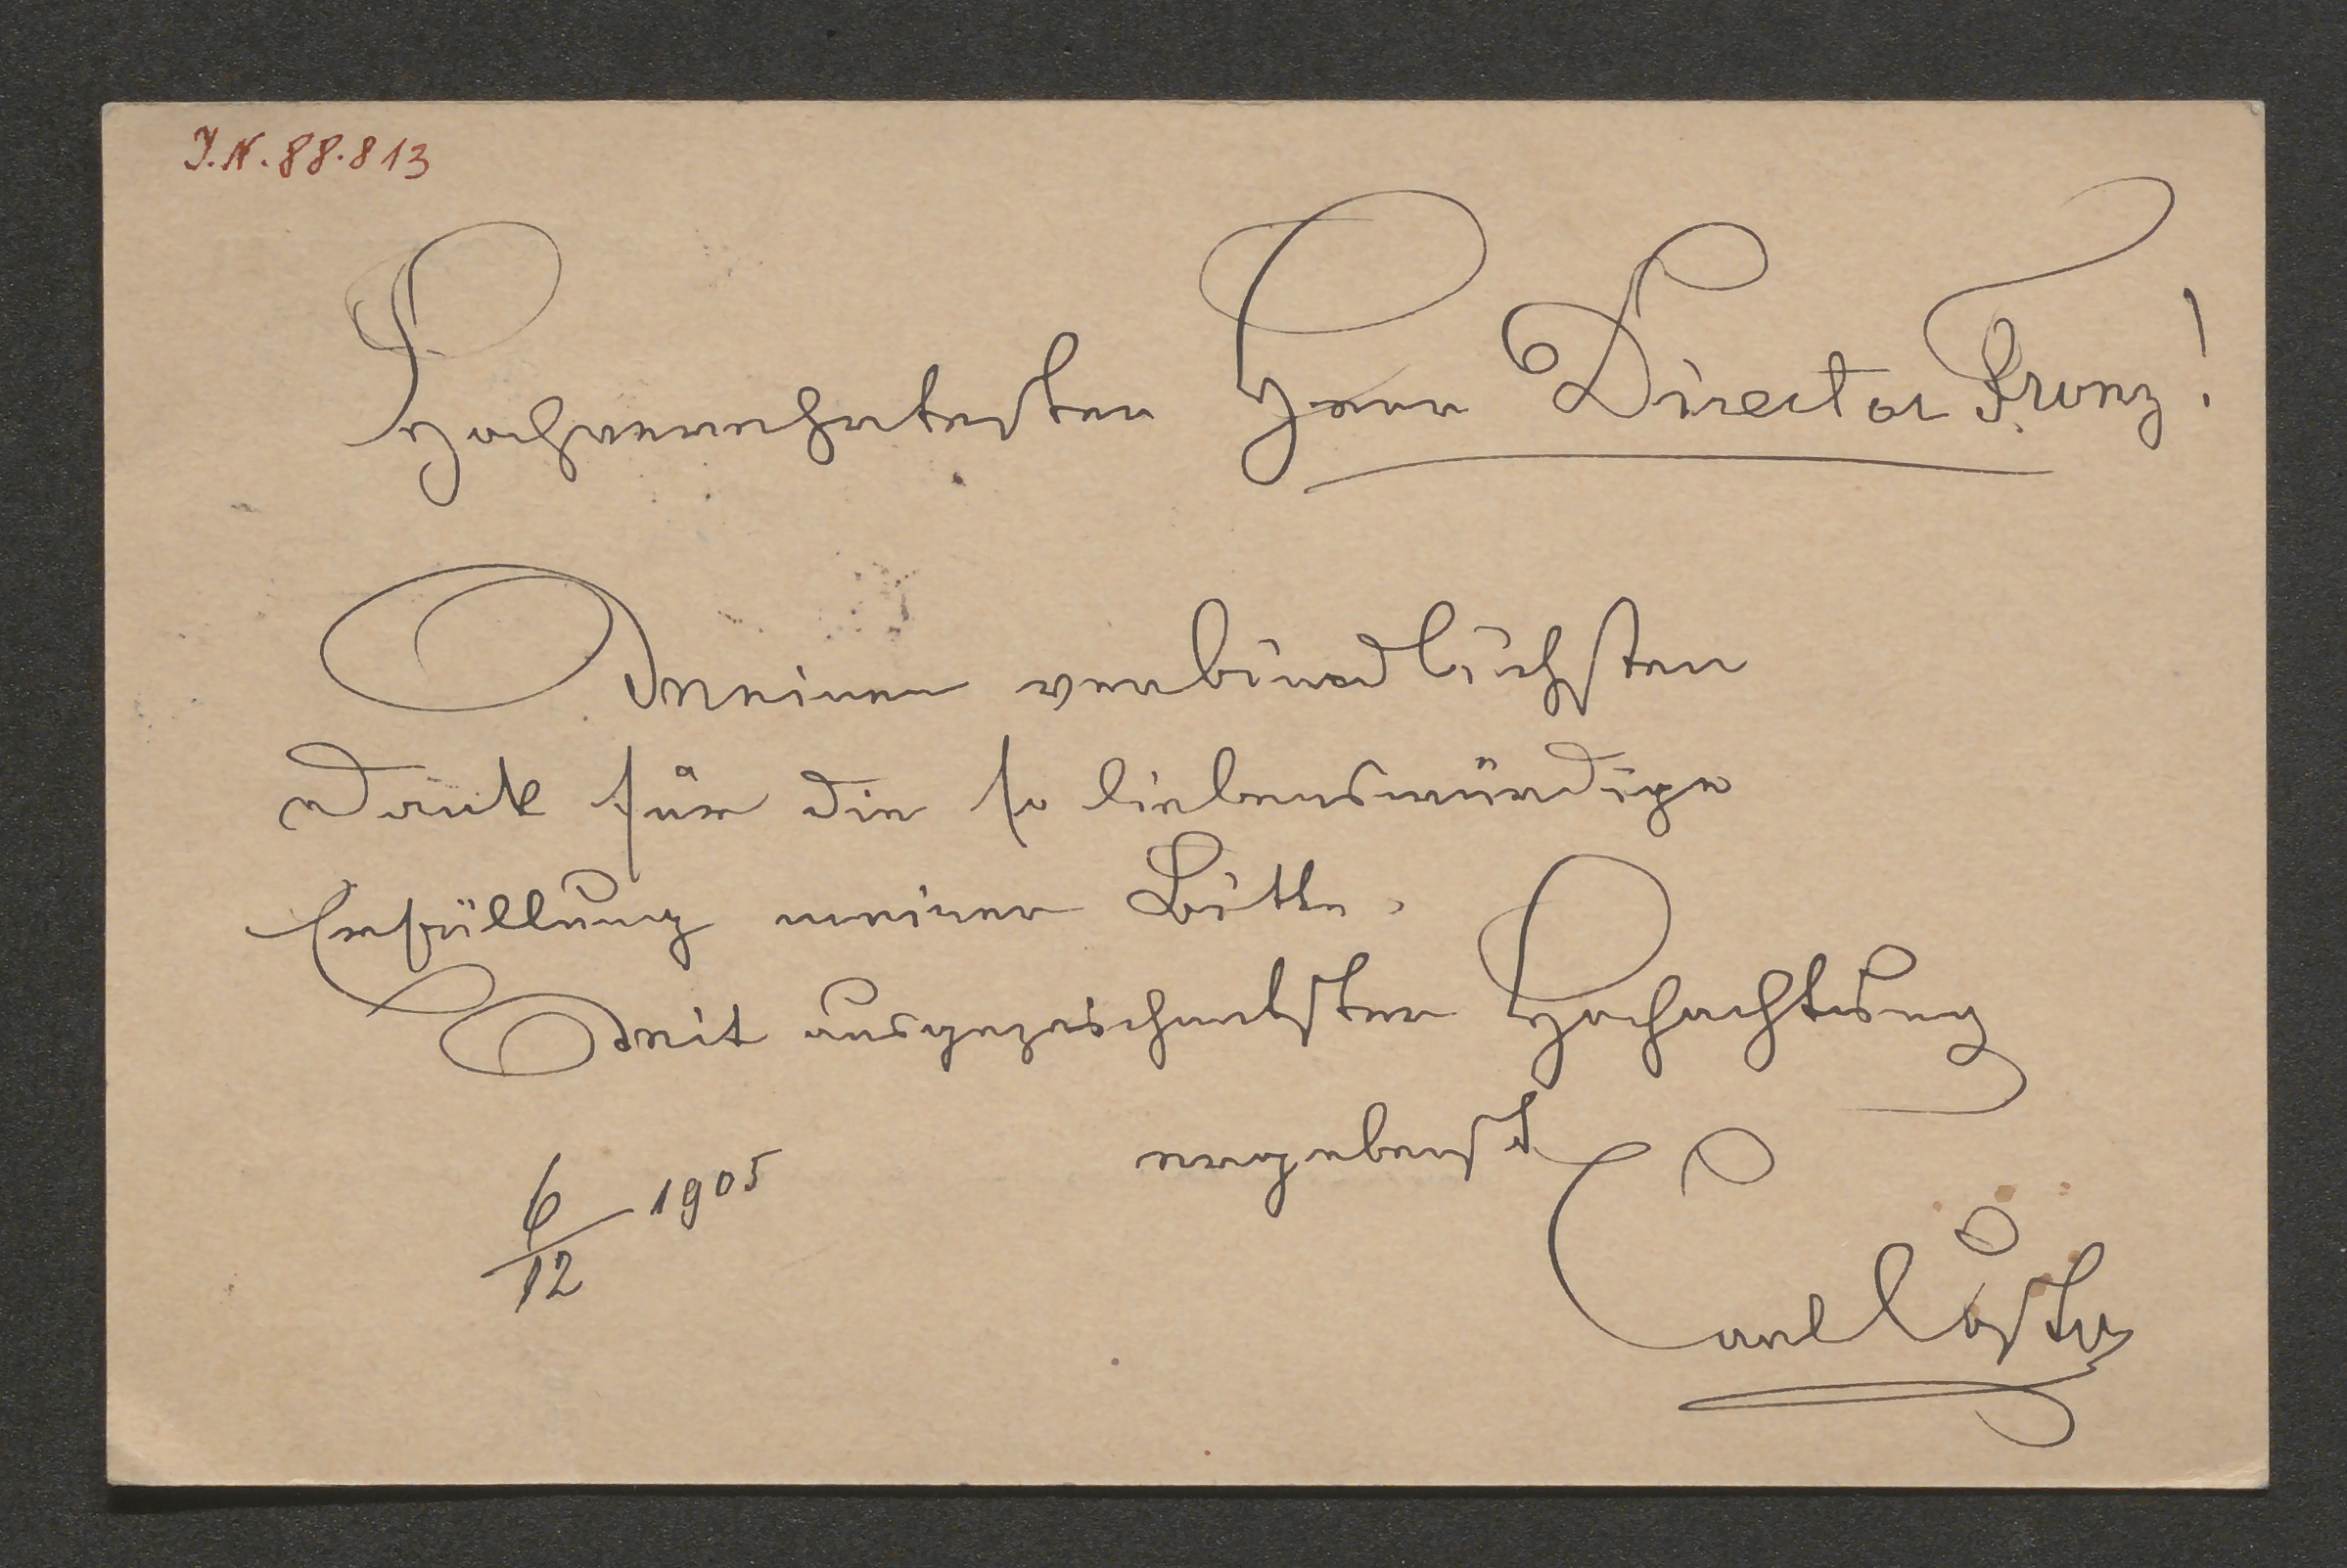 I.N. 88.813
Hochverehrtester Herr Director Fronz!
Meinen verbindlichsten
Dank für die so liebenswürdige
Erfüllung meiner Bitte.
Mit ausgezeichnetster Hochachtung
ergebenst
6/12 1905
Carl